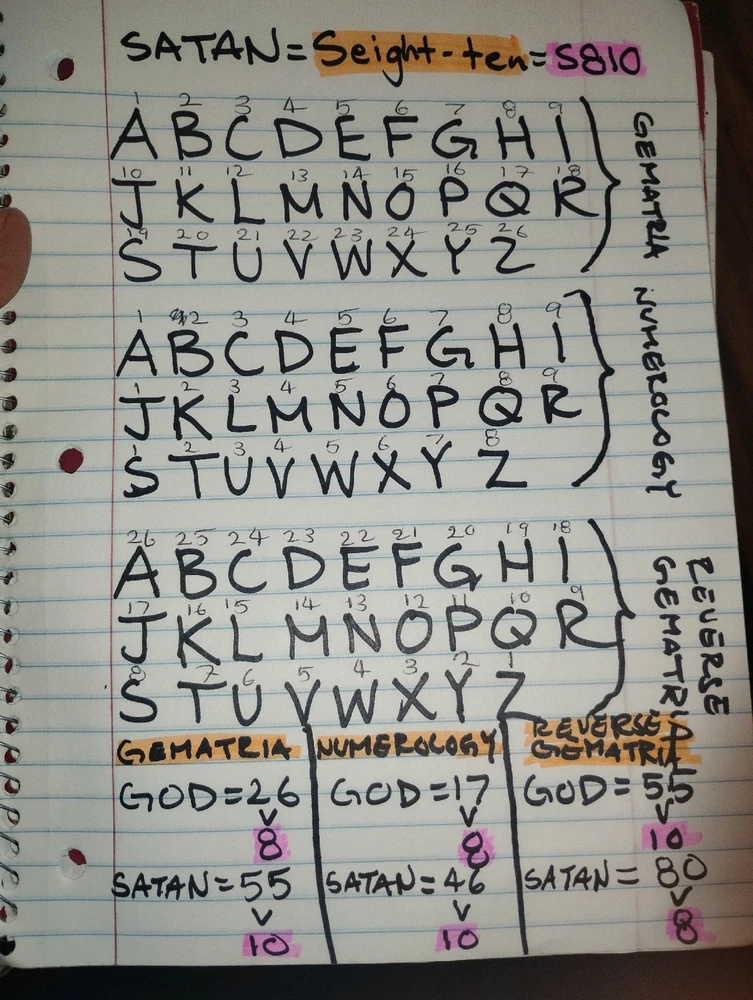 SATAN = Seight-ten = S810
1 2 3 4 5 6 7 8 9
A B C D E F G H I
10 11 12 13 14 15 16 17 18
J K L M N O P Q R
19 20 21 22 23 24 25 26
S T U V W X Y Z
GEMATRIA
1 2 3 4 5 6 7 8 9
A B C D E F G H I
1 2 3 4 5 6 7 8 9
J K L M N O P Q R
1 2 3 4 5 6 7 8
S T U V W X Y Z
NUMEROLOGY
26 25 24 23 22 21 20 19 18
A B C D E F G H I
17 16 15 14 13 12 11 10 9
J K L M N O P Q R
8 7 6 5 4 3 2 1
S T U V W X Y Z
REVERSE
GEMATRIA
GEMATRIA
GOD = 26
8
SATAN = 55
10
NUMEROLOGY
GOD = 17
8
SATAN = 46
10
REVERSE
GEMATRIA
GOD = 55
10
SATAN = 80
8